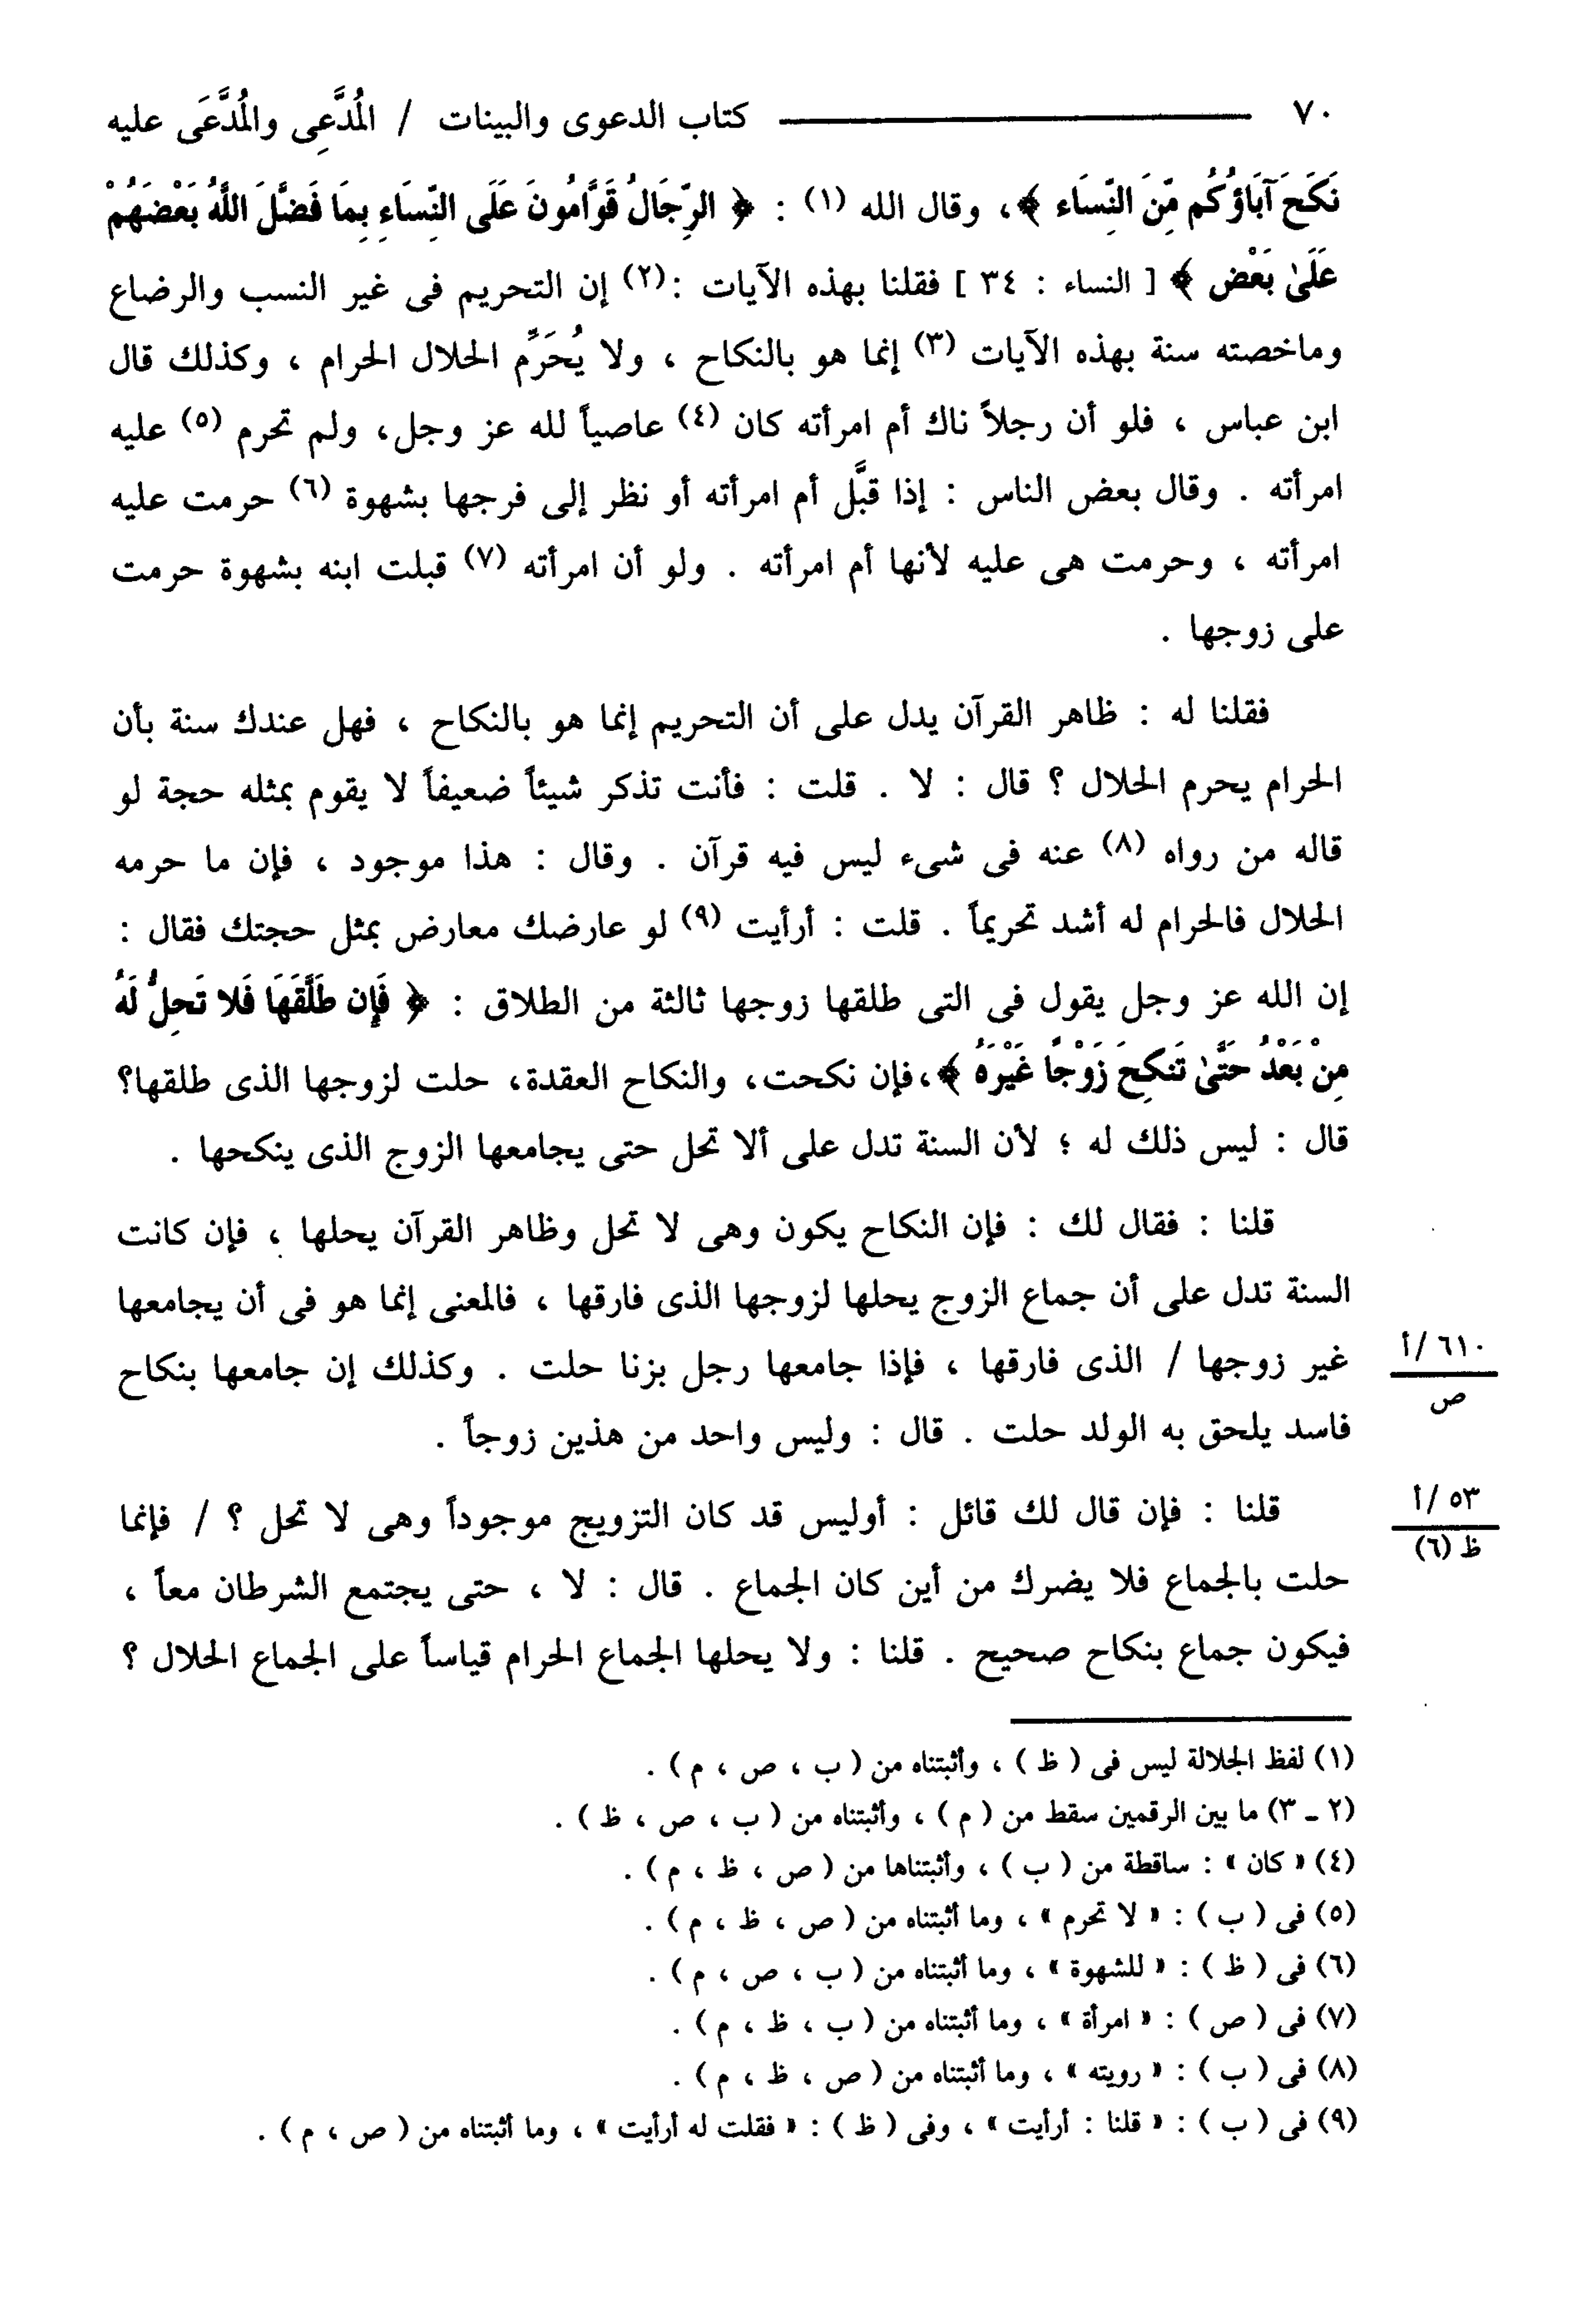 ٧٠ ــــــــــــــــــــ كتاب الدعوى والبينات / المُدَّعِى والمُدَّعَى عليه
نَكَحَ آبَاؤُكُم مِّنَ النِّسَاء ﴾، وقال الله (١) : ﴿ الرِّجَالُ قَوَّامُونَ عَلَى النِّسَاءِ بِمَا فَضَّلَ اللَّهُ بَعْضَهُمْ
عَلَىٰ بَعْضٍ ﴾ [ النساء : ٣٤ ] فقلنا بهذه الآيات :(٢) إن التحريم فى غير النسب والرضاع
وماخصته سنة بهذه الآيات (٣) إنما هو بالنكاح ، ولا يُحَرِّم الحلال الحرام ، وكذلك قال
ابن عباس ، فلو أن رجلاً ناك أم امرأته كان (٤) عاصياً لله عز وجل، ولم تحرم (٥) عليه
امرأته . وقال بعض الناس : إذا قبَّل أم امرأته أو نظر إلى فرجها بشهوة (٦) حرمت عليه
امرأته ، وحرمت هى عليه لأنها أم امرأته . ولو أن امرأته (٧) قبلت ابنه بشهوة حرمت
على زوجها .
فقلنا له : ظاهر القرآن يدل على أن التحريم إنما هو بالنكاح ، فهل عندك سنة بأن
الحرام يحرم الحلال ؟ قال : لا . قلت : فأنت تذكر شيئاً ضعيفاً لا يقوم بمثله حجة لو
قاله من رواه (٨) عنه فى شىء ليس فيه قرآن . وقال : هذا موجود ، فإن ما حرمه
الحلال فالحرام له أشد تحريماً . قلت : أرأيت (٩) لو عارضك معارض بمثل حجتك فقال :
إن الله عز وجل يقول فى التى طلقها زوجها ثالثة من الطلاق : ﴿ فَإِن طَلَّقَهَا فَلا تَحِلُّ لَهُ
مِنْ بَعْدُ حَتَّىٰ تَنكِحَ زَوْجًا غَيْرَهُ ﴾،فإن نكحت، والنكاح العقدة، حلت لزوجها الذى طلقها؟
قال : ليس ذلك له ؛ لأن السنة تدل على ألا تحل حتى يجامعها الزوج الذى ينكحها .
قلنا : فقال لك : فإن النكاح يكون وهى لا تحل وظاهر القرآن يحلها ، فإن كانت
السنة تدل على أن جماع الزوج يحلها لزوجها الذى فارقها ، فالمعنى إنما هو فى أن يجامعها
غير زوجها / الذى فارقها ، فإذا جامعها رجل بزنا حلت . وكذلك إن جامعها بنكاح
٦١٠ /أ
ص
فاسد يلحق به الولد حلت . قال : وليس واحد من هذين زوجاً .
قلنا : فإن قال لك قائل : أوليس قد كان التزويج موجوداً وهى لا تحل ؟ / فإنما
٥٣ /أ
ظ (٦)
حلت بالجماع فلا يضرك من أين كان الجماع . قال : لا ، حتى يجتمع الشرطان معاً ،
فيكون جماع بنكاح صحيح . قلنا : ولا يحلها الجماع الحرام قياساً على الجماع الحلال ؟
(١) لفظ الجلالة ليس فى ( ظ ) ، وأثبتناه من ( ب ، ص ، م ) .
(٢ ـ ٣) ما بين الرقمين سقط من ( م ) ، وأثبتناه من ( ب ، ص ، ظ ) .
(٤) « كان » : ساقطة من ( ب ) ، وأثبتناها من ( ص ، ظ ، م ) .
(٥) فى ( ب ) : « لا تحرم » ، وما أثبتناه من ( ص ، ظ ، م ) .
(٦) فى ( ظ ) : « للشهوة » ، وما أثبتناه من ( ب ، ص ، م ) .
(٧) فى ( ص ) : « امرأة » ، وما أثبتناه من ( ب ، ظ ، م ) .
(٨) فى ( ب ) : « رويته » ، وما أثبتناه من ( ص ، ظ ، م ) .
(٩) فى ( ب ) : « قلنا : أرأيت » ، وفى ( ظ ) : « فقلت له أرأيت » ، وما أثبتناه من ( ص ، م ) .